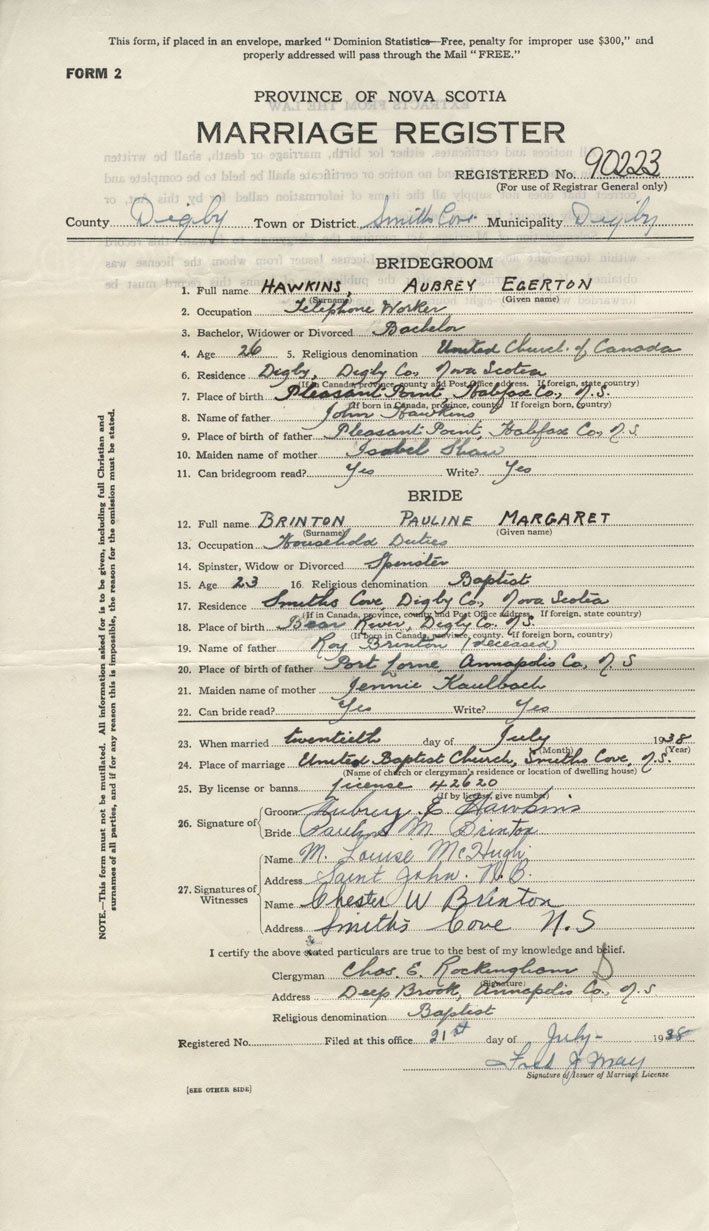 This form, if placed in an envelope, marked "Dominion Statistics—Free, penalty for improper use $300," and
properly addressed will pass through the Mail "FREE."
FORM 2
PROVINCE OF NOVA SCOTIA
MARRIAGE REGISTER
REGISTERED No. 90223
(For use of Registrar General only)
County Digby Town or District Smiths Cove Municipality Digby
BRIDEGROOM
1. Full name HAWKINS, AUBREY EGERTON
(Surname) (Given name)
2. Occupation Telephone Worker
3. Bachelor, Widower or Divorced Bachelor
4. Age 26 5. Religious denomination United Church of Canada
6. Residence Digby, Digby Co, Nova Scotia
(If in Canada, province, county and Post Office address. If foreign, state country)
7. Place of birth Pleasant Point, Halifax Co, N.S.
(If born in Canada, province, county. If foreign born, country)
8. Name of father John Hawkins
9. Place of birth of father Pleasant Point, Halifax Co, N.S.
10. Maiden name of mother Isabel Shaw
11. Can bridegroom read? Yes Write? Yes
BRIDE
12. Full name BRINTON PAULINE MARGARET
(Surname) (Given name)
13. Occupation Household Duties
14. Spinster, Widow or Divorced Spinster
15. Age 23 16. Religious denomination Baptist
17. Residence Smiths Cove, Digby Co, Nova Scotia
(If in Canada, province, county and Post Office address. If foreign, state country)
18. Place of birth Bear River, Digby Co. N.S.
(If born in Canada, province, county. If foreign born, country)
19. Name of father Roy Brinton (deceased)
20. Place of birth of father Port Lorne, Annapolis Co, N.S
21. Maiden name of mother Jennie Kaulbach
22. Can bride read? Yes Write? Yes
23. When married twentieth day of July 1938
(Month) (Year)
24. Place of marriage United Baptist Church, Smiths Cove, N.S.
(Name of church or clergyman's residence or location of dwelling house)
25. By license or banns license 42620
(If by license, give number)
26. Signature of Groom Aubrey E Hawkins
Bride Pauline M Brinton
27. Signatures of Witnesses Name M. Louise McHugh
Address Saint John. N.B.
Name Chester W Brinton
Address Smith's Cove N.S
I certify the above stated particulars are true to the best of my knowledge and belief.
Clergyman Chas. E. Rockingham
(Signature)
Address Deep Brook, Annapolis Co, N.S
Religious denomination Baptist
Registered No. Filed at this office 21st day of July 1938
Fred J May
Signature of Issuer of Marriage License
[SEE OTHER SIDE]
NOTE.—This form must not be mutilated. All information asked for is to be given, including full Christian and
surnames of all parties, and if for any reason this is impossible, the reason for the omission must be stated.